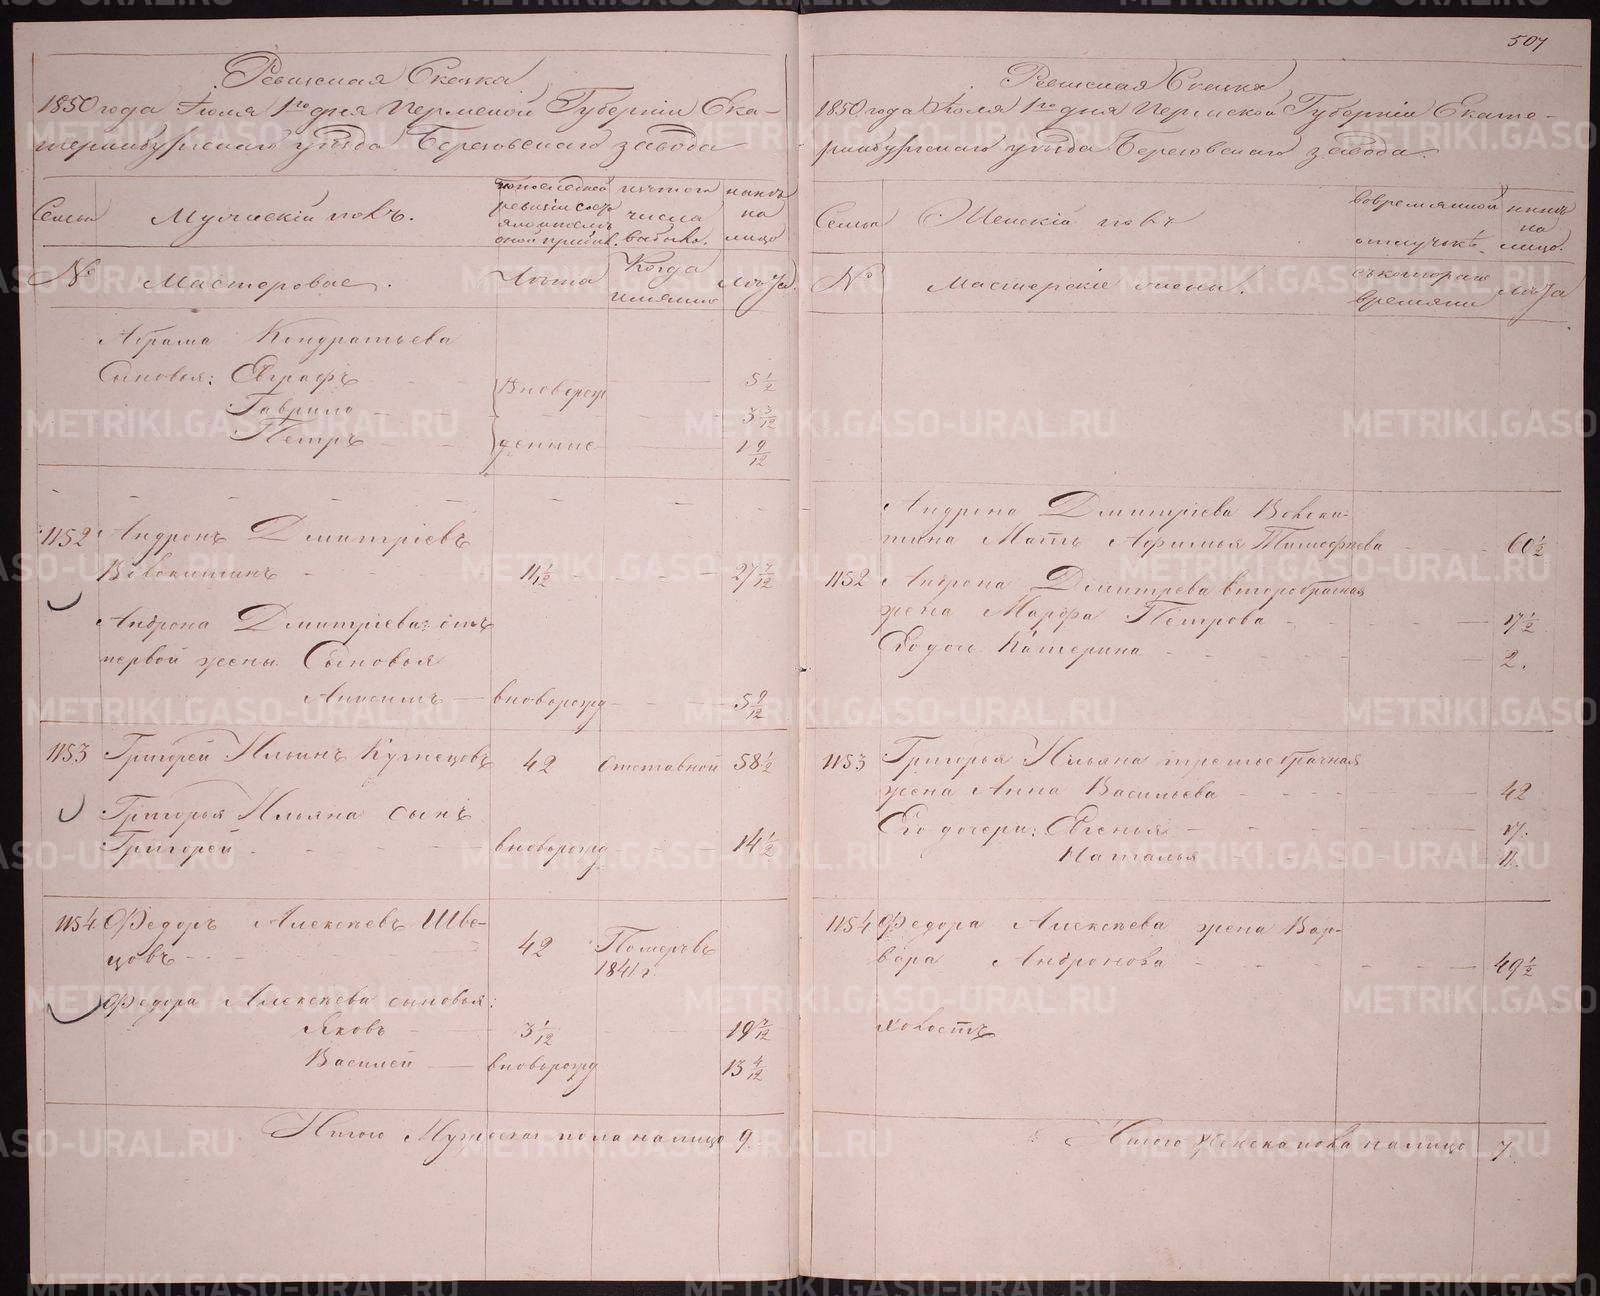 Ревизская Сказка
1850 года Іюля 1го дня Пермской Губерніи Ека-
теринбургскаго уѣзда Березовскаго завода
Семьи
Мужескій полъ.
по последней ревизіи состояло и после оной прибыло.
изъ того числа выбыло.
ныне на лицо
№
Мастеровые.
Лѣта
Когда именно
Лѣта.
Абрама Кондратьева
Сыновья: Евграфъ 5 1/2
Гаврило 3 3/12
Петръ 1 9/12
Вноворож
денные
1152 Андронъ Дмитріевъ
Вовокитинъ 11 1/12 27 7/12
Андрона Дмитріева отъ
первой жены Сыновья
Анисимъ вноворожд 5 9/12
1153 Григорей Ильинъ Кузнецовъ 42 Отставной 58 1/2
Григорья Ильина сынъ
Григорей вноворожд 14 1/2
1154 Федоръ Алексѣевъ Шве-
цовъ 42 Померъ въ
1841 г.
Федора Алексѣева сыновья:
Яковъ 3 1/12 19 7/12
Василей вноворожд 13 4/12
Итого Мужеска пола на лицо 9.
507
Ревизская Сказка
1850 года Іюля 1го дня Пермской Губерніи Екате-
ринбургскаго уѣзда Березовскаго завода.
Семьи
Женскій полъ
во временной отлучкѣ.
ныне на лицо.
№
Мастерскіе жены.
съ котораго времяни
Лѣта
Андрона Дмитріева Вовоки-
тина Мать Афимья Тимофеева 60 1/2
1152 Андрона Дмитріева второбрачная
жена Марфа Петрова 17 1/2
Его дочь Катерина 2.
1153 Григорья Ильина третьебрачная
жена Анна Васильева 42
Его дочери: Евгенья 17.
Наталья 11.
1154 Федора Алексѣева жена Вар-
вара Андронова 49 1/2
холостъ
Итого женска пола на лицо 7.
METRIKI.GASO-URAL.RU